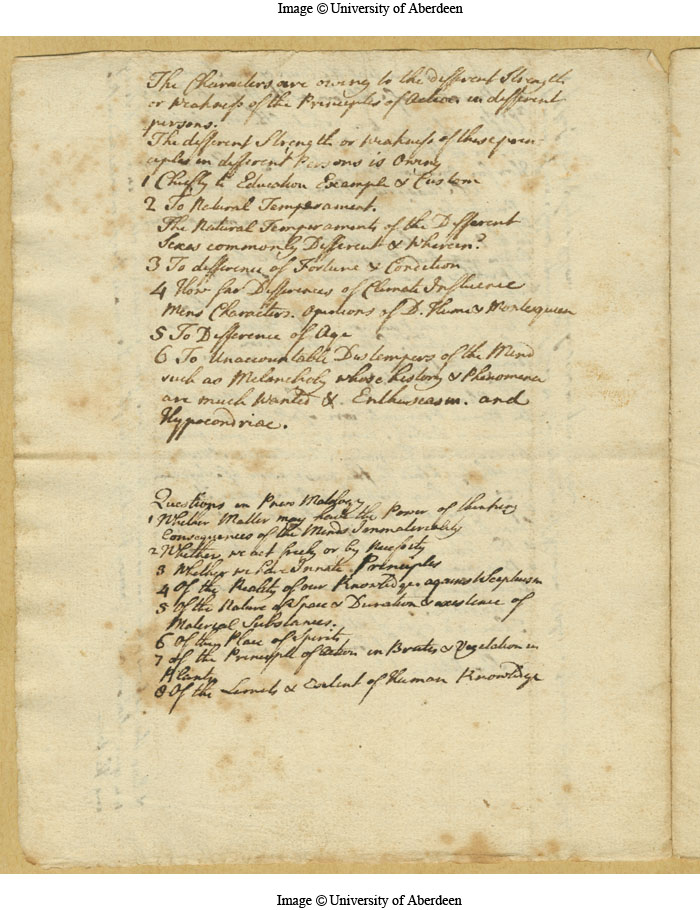 Image © University of Aberdeen
The Characters are owing to the different Strength
or Weakness of the Principles of Action in different
persons.
The different Strength or Weakness of these prin-
ciples in different Persons is Owing
1 Chiefly to Education Example & Custom
2 To Natural Temperament.
The Natural Temperaments of the Different
Sexes commonly Different & Wherein?
3 To difference of Fortune & Condition
4 How far Differences of Climate Influence
Mens Characters. Opinions of D. Hume & Montesquieu
5 To Difference of Age
6 To Unaccountable Distempers of the Mind
such as Melancholy whose history & Phenomena
are much Wanted & Enthusiasm. and
Hypocondriac.
Questions in
1 Whether Matter may have the Power of thinking
Consequences of the Minds Immateriality
2 Whether we act freely or by Necessity
3 Whether we have Innate Principles
4 Of the Reality of our Knowledge against
5 Of the Nature of Space & Duration & existence of
Material Substances.
6 Of the Place of Spirits
7 Of the Principle of action in Brutes & Vegetation in
Plants
8 Of the Limits & Extent of Human Knowledge
Image © University of Aberdeen